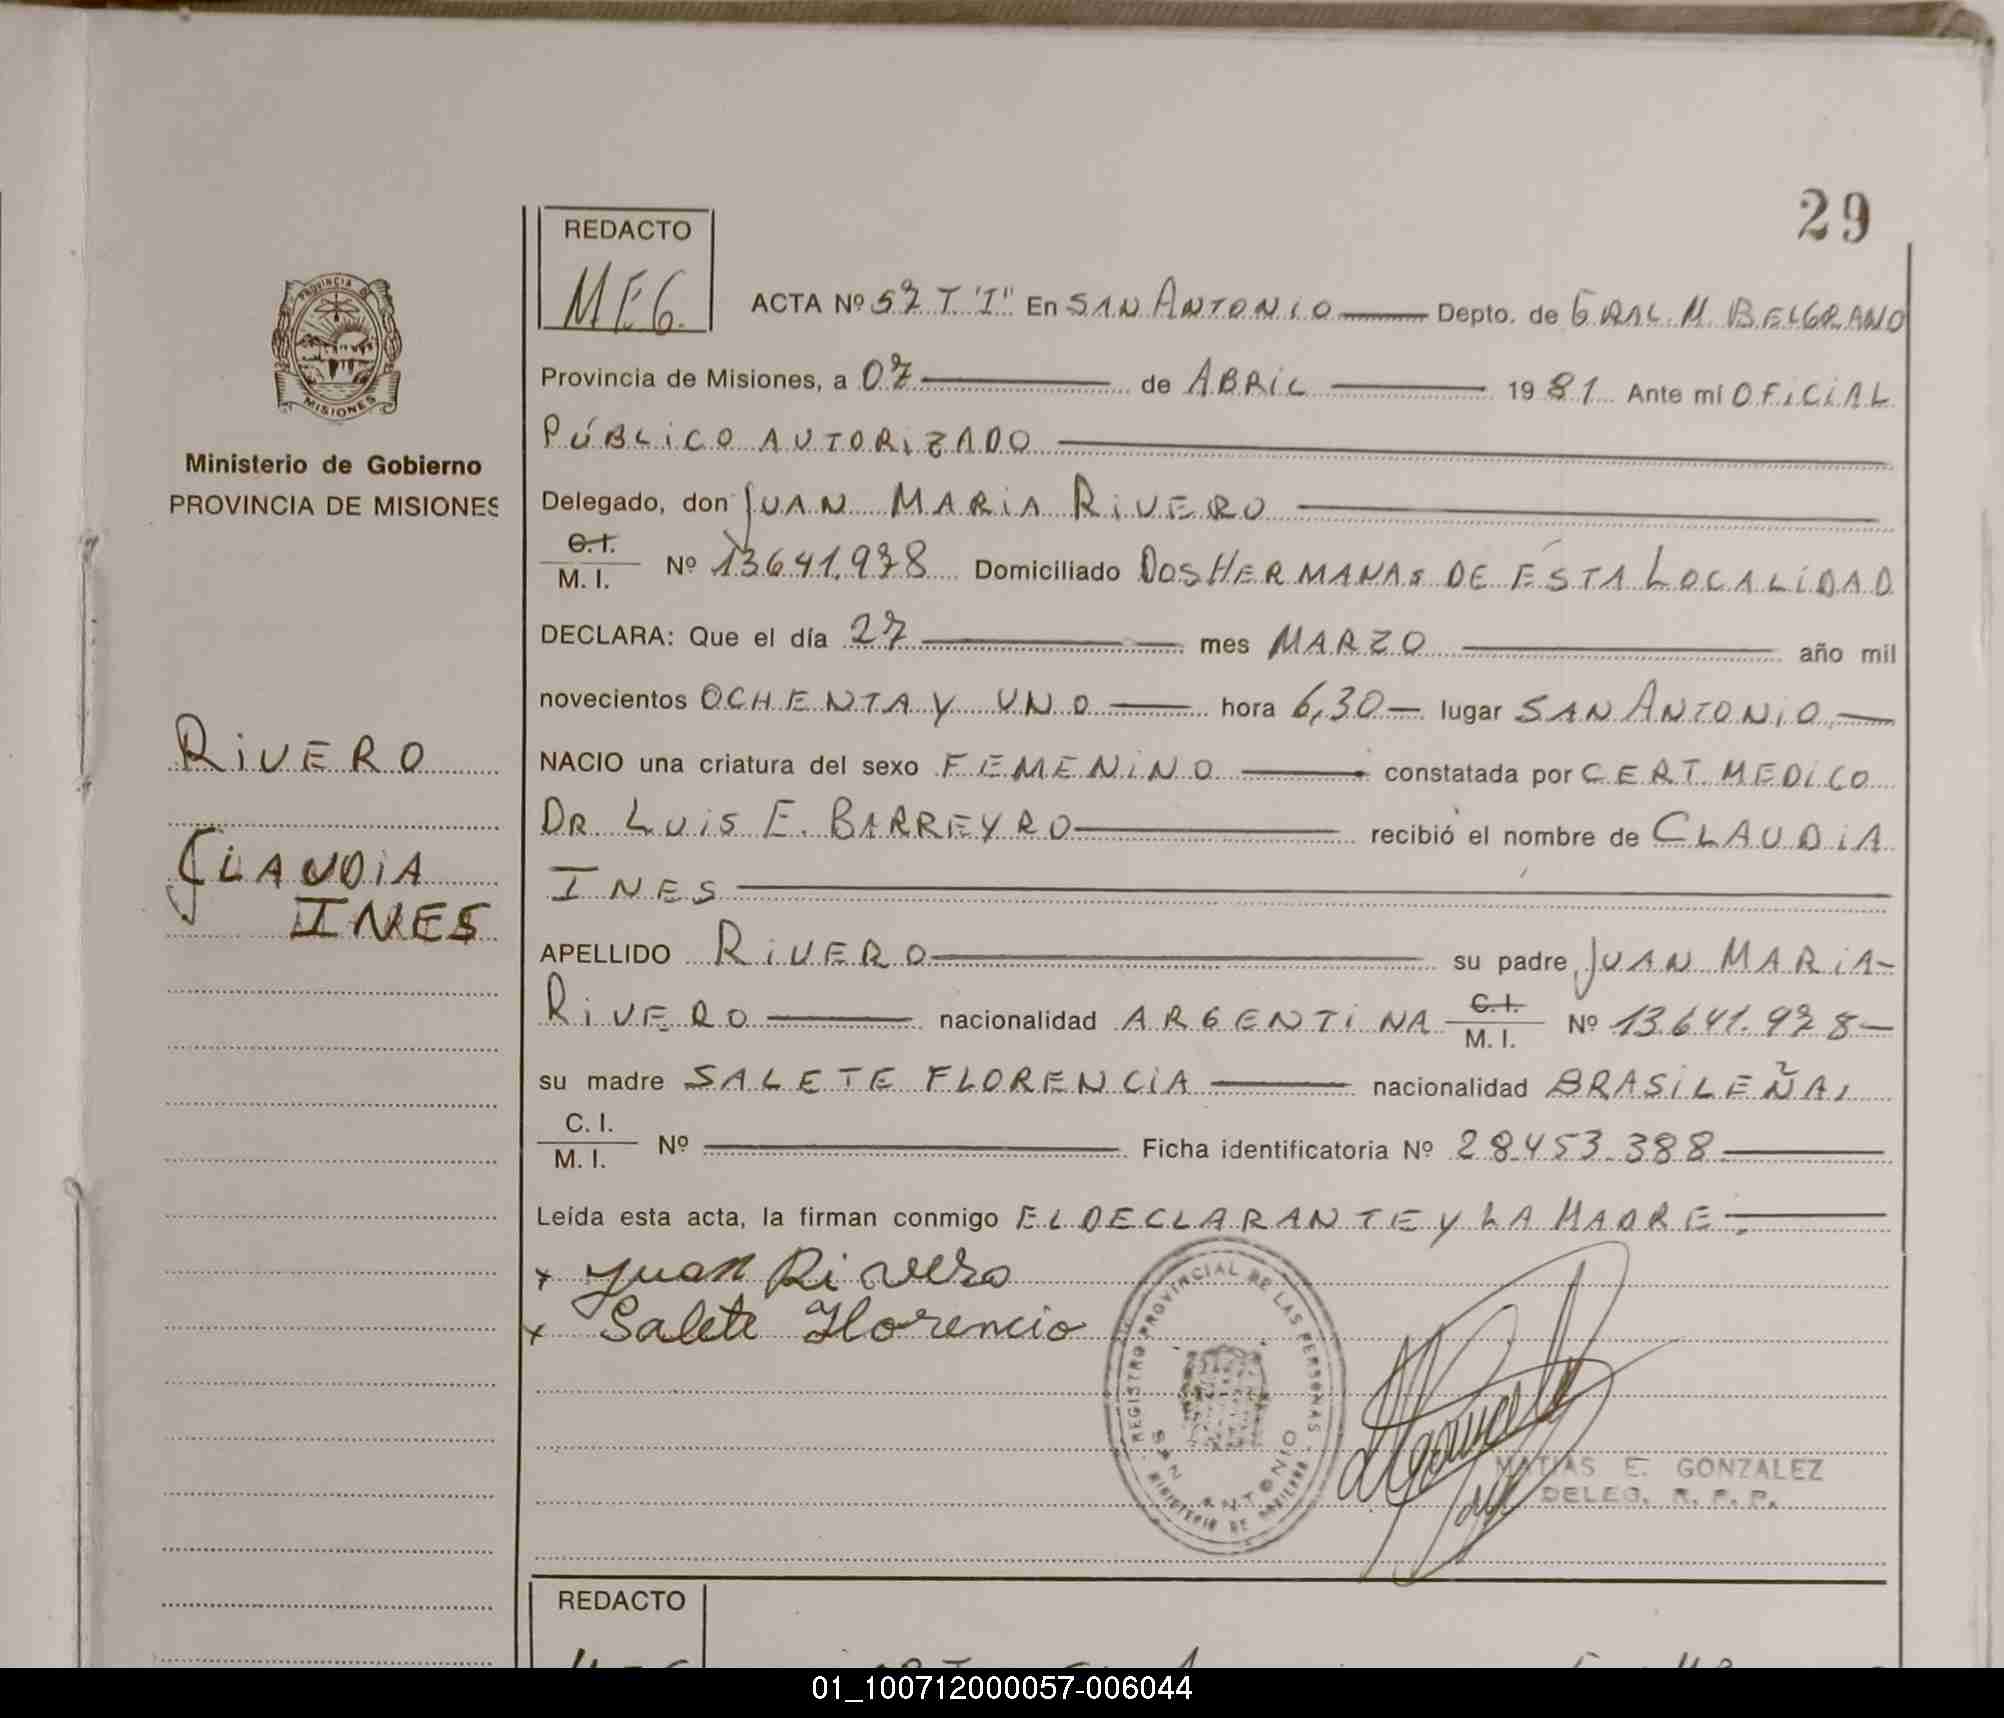 29
REDACTO
M.E.G.
ACTA Nº 57 T "I" En SAN ANTONIO Depto. de GRAL. M. BELGRANO
Provincia de Misiones, a 07 de ABRIL 1981 Ante mí OFICIAL
PÚBLICO AUTORIZADO
Delegado, don JUAN MARIA RIVERO
C. I.
M. I. Nº 13.641.978 Domiciliado DOS HERMANAS DE ÉSTA LOCALIDAD
DECLARA: Que el día 27 mes MARZO año mil
novecientos OCHENTA Y UNO hora 6,30 lugar SAN ANTONIO
NACIO una criatura del sexo FEMENINO constatada por CERT. MEDICO
DR. LUIS E. BARREYRO recibió el nombre de CLAUDIA
INES
APELLIDO RIVERO su padre JUAN MARIA
RIVERO nacionalidad ARGENTINA C. I. M. I. Nº 13.641.978
su madre SALETE FLORENCIA nacionalidad BRASILEÑA,
C. I.
M. I. Nº Ficha identificatoria Nº 28.453.388
Leída esta acta, la firman conmigo EL DECLARANTE Y LA MADRE.
x Juan Rivero
x Salete Florencio
REGISTRO PROVINCIAL DE LAS PERSONAS
SAN ANTONIO
MINISTERIO DE GOBIERNO
MATIAS E. GONZALEZ
DELEG. R. P. P.
PROVINCIA DE
MISIONES
Ministerio de Gobierno
PROVINCIA DE MISIONES
RIVERO
CLAUDIA
INES
REDACTO
01_100712000057-006044